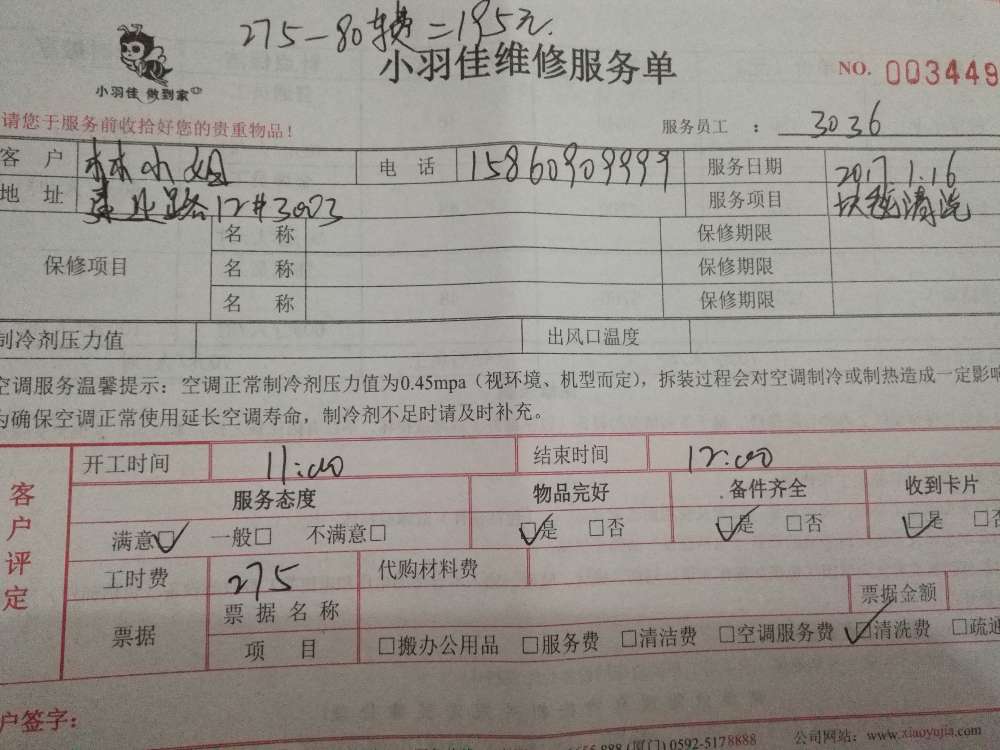 275-80车费=195元.
小羽佳维修服务单
NO. 003449
小羽佳 做到家
请您于服务前收拾好您的贵重物品!
服务员工 : 3036
客 户 林小姐 电 话 15860909999 服务日期 2017.1.16
地 址 路12#3003 服务项目 清洗
保修项目
名 称 保修期限
名 称 保修期限
名 称 保修期限
制冷剂压力值 出风口温度
空调服务温馨提示：空调正常制冷剂压力值为0.45mpa（视环境、机型而定），拆装过程会对空调制冷或制热造成一定影响
为确保空调正常使用延长空调寿命，制冷剂不足时请及时补充。
客户评定
开工时间 11:00 结束时间 12:00
服务态度 物品完好 备件齐全 收到卡片
满意☑ 一般□ 不满意□ ☑是 □否 ☑是 □否 ☑是 □否
工时费 275 代购材料费
票据 票 据 名 称 票据金额
项 目 □搬办公用品 □服务费 □清洁费 □空调服务费 ☑清洗费 □疏通
户签字：
888 (厦门) 0592-5178888 公司网站：www.xiaoyujia.com